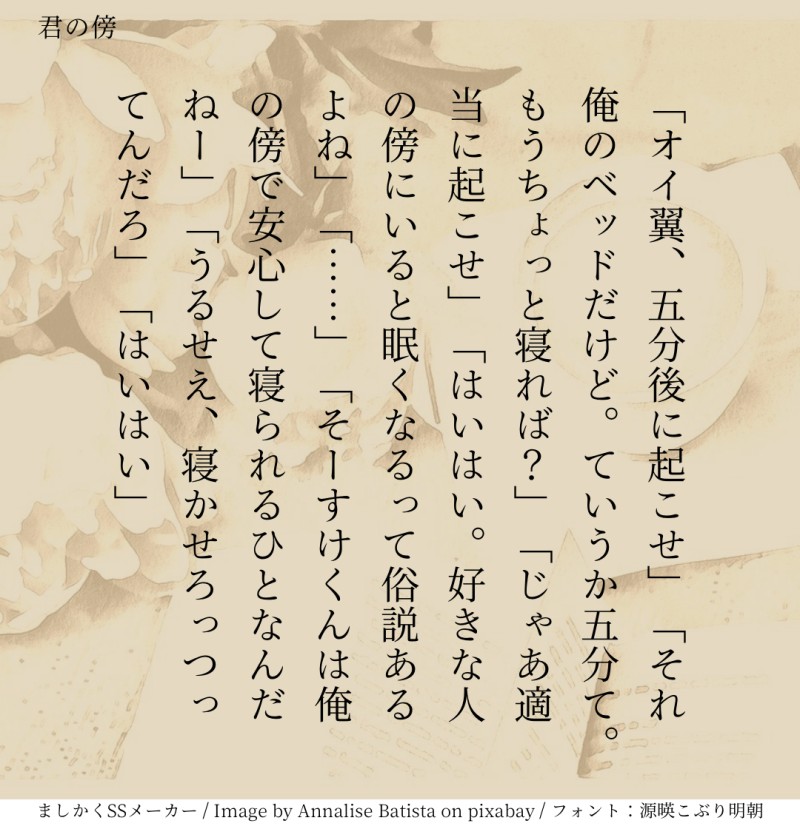 君の傍
「オイ翼、五分後に起こせ」「それ
俺のベッドだけど。ていうか五分て。
もうちょっと寝れば?」「じゃあ適
当に起こせ」「はいはい。好きな人
の傍にいると眠くなるって俗説ある
よね」「……」「そーすけくんは俺
の傍で安心して寝られるひとなんだ
ねー」「うるせえ、寝かせろっつっ
てんだろ」「はいはい」
ましかくSSメーカー / Image by Annalise Batista on pixabay / フォント：源暎こぶり明朝